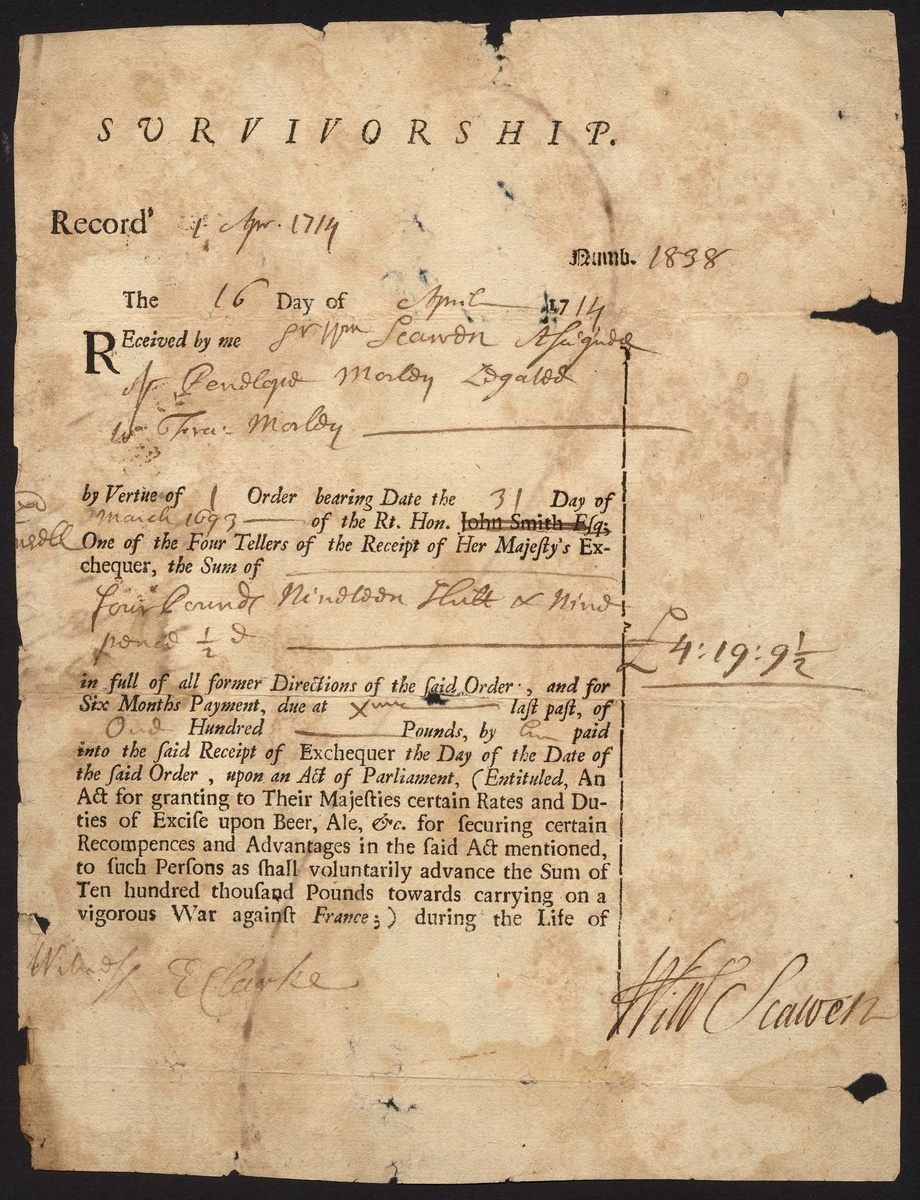 SURVIVORSHIP.
Record' 1 Apr. 1714
Numb. 1838
The 16 Day of April 1714
REceived by me Sr Wm Scawen Assignee
of Penelope Morley Legatee
to Fra: Morley
by Vertue of 1 Order bearing Date the 31 Day of
March 1693 of the Rt. Hon. John Smith Esq;
One of the Four Tellers of the Receipt of Her Majeſty's Ex-
chequer, the Sum of
four Pounds Nineteen Shill & Nine
pence ½ d
£4:19:9½
in full of all former Directions of the ſaid Order , and for
Six Months Payment, due at Xmas laſt paſt, of
One Hundred Pounds, by him paid
into the ſaid Receipt of Exchequer the Day of the Date of
the ſaid Order , upon an Act of Parliament, (Entituled, An
Act for granting to Their Majeſties certain Rates and Du-
ties of Exciſe upon Beer, Ale, &c. for ſecuring certain
Recompences and Advantages in the ſaid Act mentioned,
to ſuch Perſons as ſhall voluntarily advance the Sum of
Ten hundred thouſand Pounds towards carrying on a
vigorous War againſt France;) during the Life of
Witness E Clarke
Will Scawen